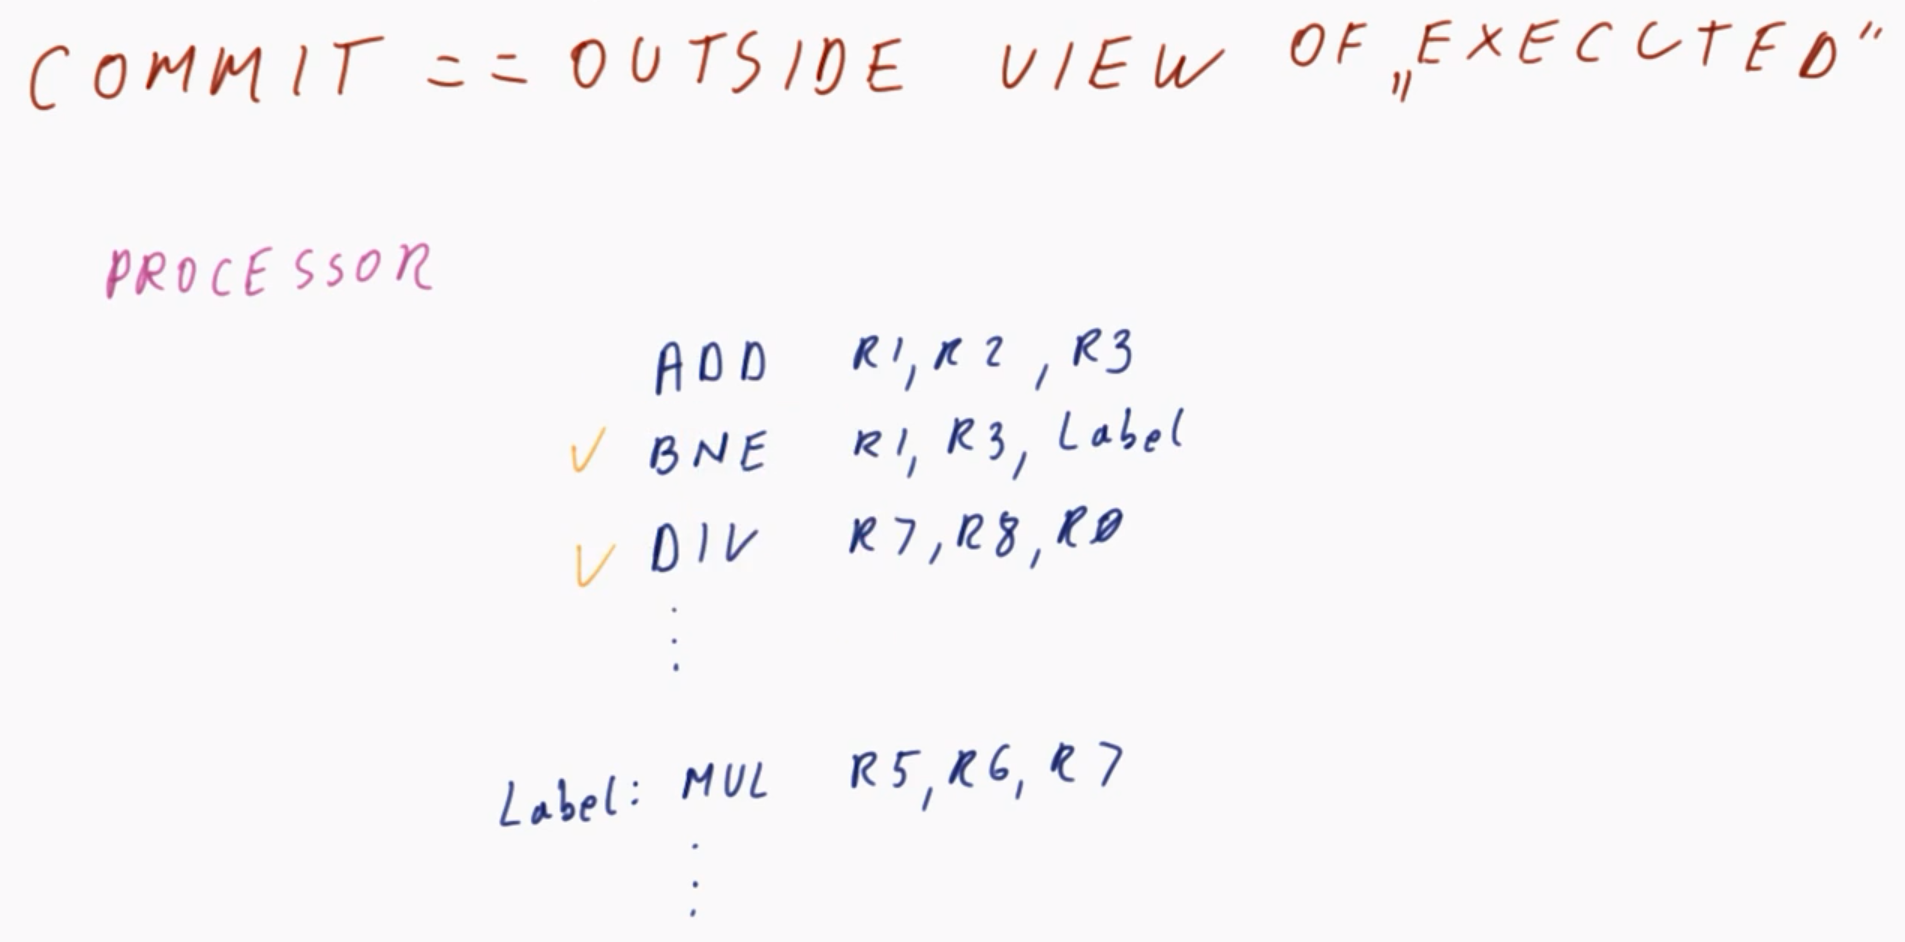 COMMIT == OUTSIDE VIEW OF „EXECUTED”
PROCESSOR
ADD R1, R2, R3
✓ BNE R1, R3, Label
✓ DIV R7, R8, R0
⋮
Label: MUL R5, R6, R7
⋮